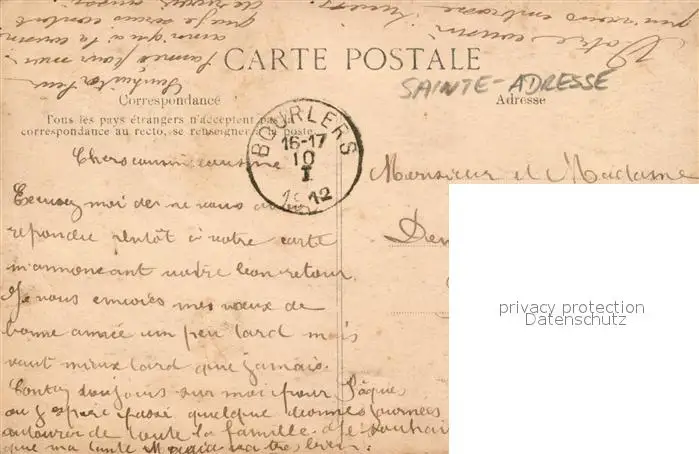 CARTE POSTALE
SAINTE-ADRESSE
Correspondance
Adresse
Tous les pays étrangers n'acceptent pas la
correspondance au recto, se renseigner à la poste
BOURLERS
16-17
10
I
1912
Chers cousin cousine
Monsieur et Madame
moi de ne vous avoir
repondu plentôt à votre carte
m'annoncant votre bon retour.
Je vous envoies mes vœux de
bonne année un peu tard mais
vaut mieux tard que jamais.
toujours sur moi pour Pâques
quelque bonnes journées
autourer de toute la famille. Je souhai
que ma tante va très bien
Votre cousin
qui vous embrasse
privacy protection
Datenschutz